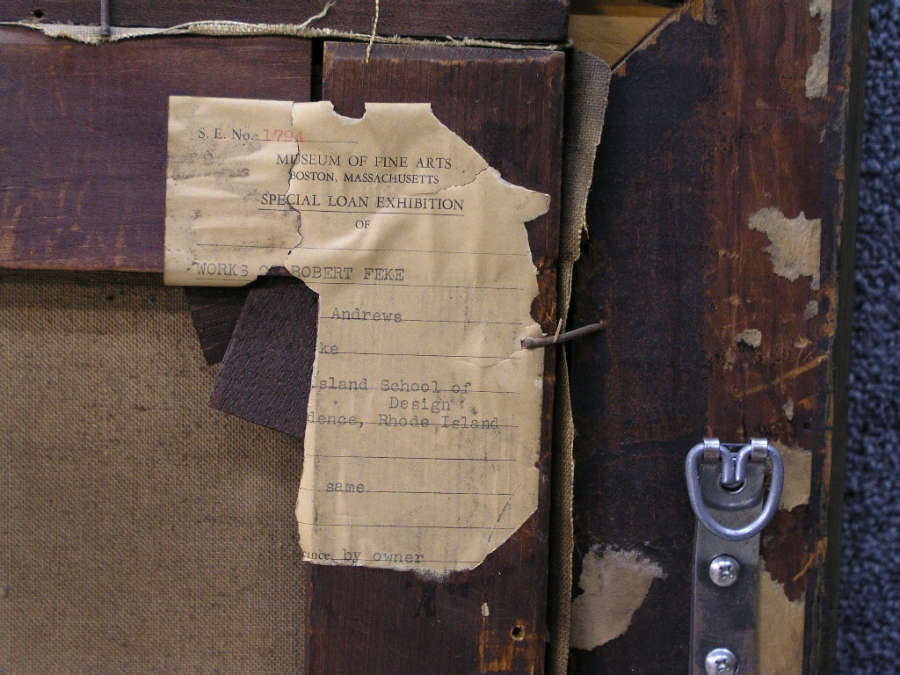 S. E. No. 1794
MUSEUM OF FINE ARTS
BOSTON, MASSACHUSETTS
SPECIAL LOAN EXHIBITION
OF
WORKS ROBERT FEKE
Andrews
ke
sland School of
Design
dence, Rhode Island
same
ance by owner